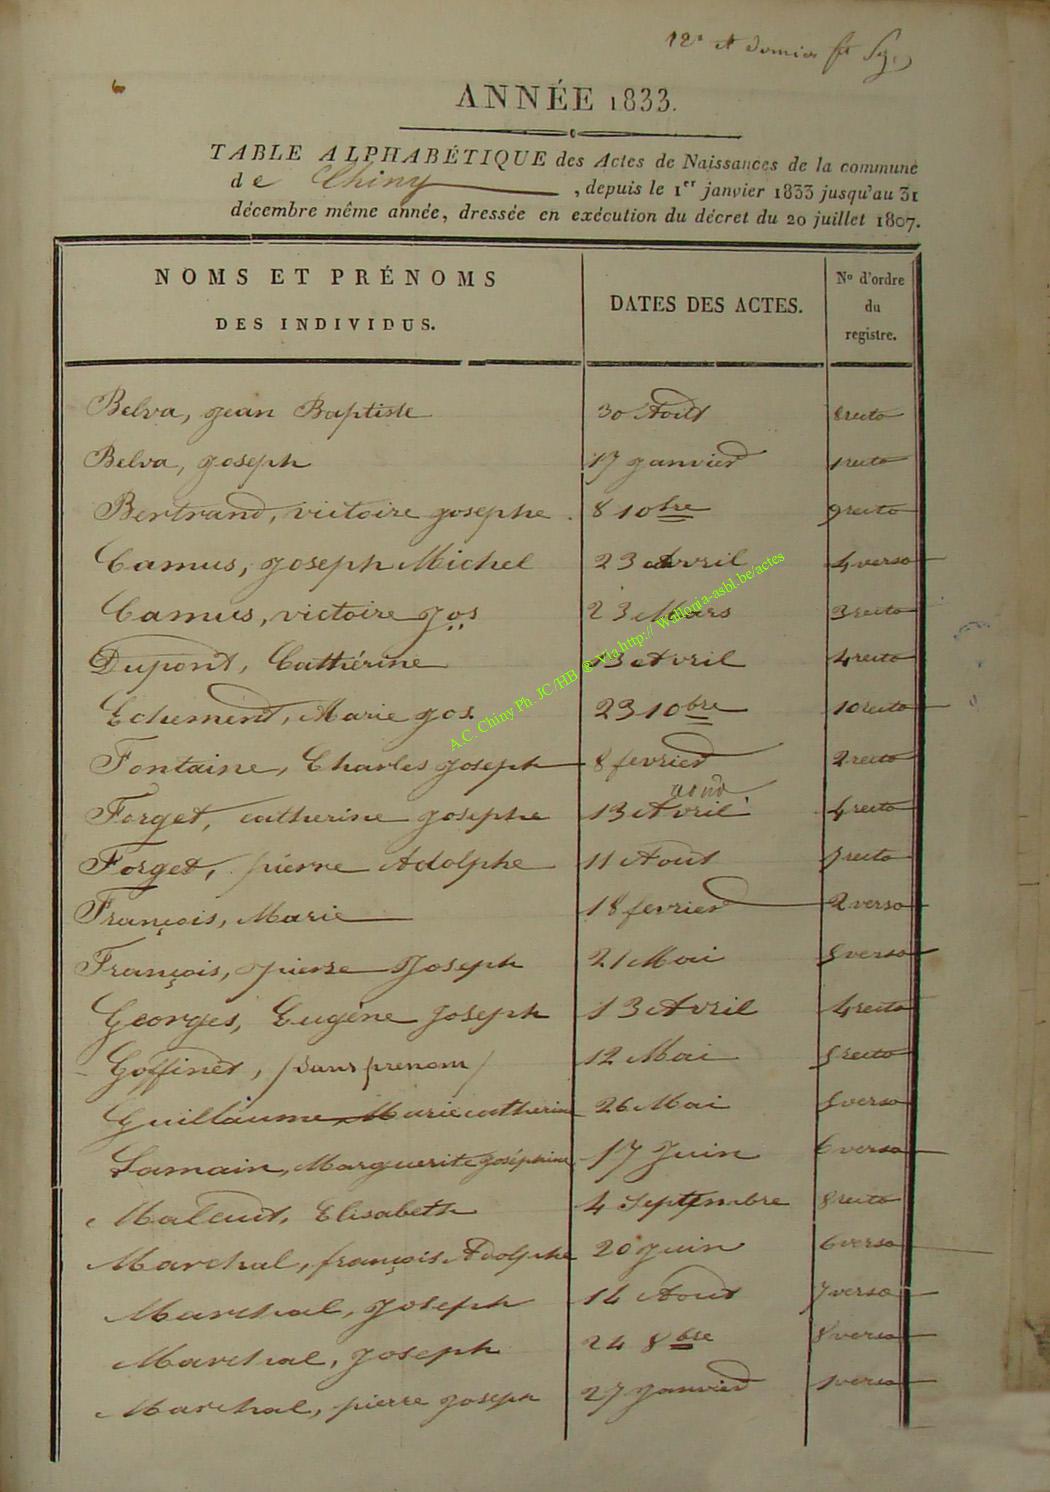 12e et dernier ft
ANNÉE 1833.
TABLE ALPHABÉTIQUE des Actes de Naissances de la commune
de Chiny, depuis le 1er janvier 1833 jusqu'au 31
décembre même année, dressée en exécution du décret du 20 juillet 1807.
NOMS ET PRÉNOMS DES INDIVIDUS. DATES DES ACTES. No d'ordre du registre.
Belva, jean Baptiste 30 Août 8 recto
Belva, joseph 17 janvier 1 recto
Bertrand, victoire josephe. 8 10bre 9 recto
Camus, joseph Michel 23 Avril 4 verso
Camus, victoire jos 23 Mars 3 recto
Dupont, Cathérine 13 Avril 4 recto
Echement, Marie jos. 23 10bre 10 recto
Fontaine, Charles joseph 8 fevrier 2 recto
aoud
Forget, catherine josephe 13 Avril 4 recto
Forget, pierre Adolphe 11 Août recto
François, Marie 18 fevrier 2 verso
François, pierre Joseph 21 Mai 5 verso
Georges, Eugène Joseph 13 Avril 4 recto
Goffinet, /sans prenom/ 12 Mai 5 recto
Guillaume, Marie catherine 26 Mai 5 verso
Lamain, Marguerite Joséphine 17 Juin 6 verso
Maleut, Elisabeth 4 Septembre 8 recto
Marchal, françois Adolphe 20 juin 6 verso
Marchal, joseph 14 Août 7 verso
Marchal, joseph 24 8bre 8 verso
Marchal, pierre joseph 27 janvier 1 verso
A.C. Chiny Ph. JC/HB @ Via http:// Wallonia-asbl.be/actes